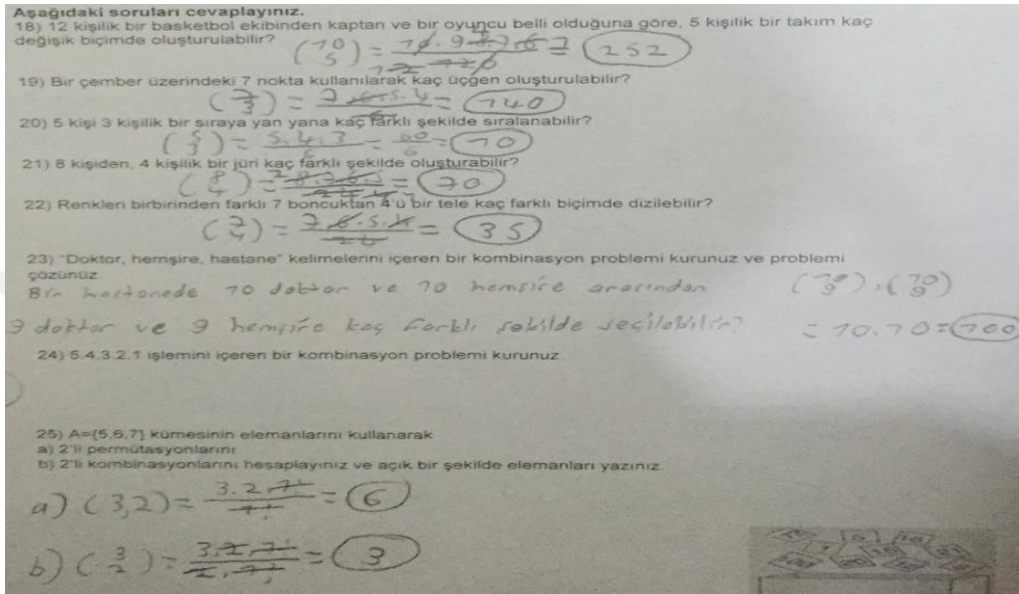 Aşağıdaki soruları cevaplayınız.
18) 12 kişilik bir basketbol ekibinden kaptan ve bir oyuncu belli olduğuna göre, 5 kişilik bir takım kaç
değişik biçimde oluşturulabilir?
(10 5) = 10.9.8.7.6 = 252
19) Bir çember üzerindeki 7 nokta kullanılarak kaç üçgen oluşturulabilir?
(7 3) = 7.6.5.4 = 140
20) 5 kişi 3 kişilik bir sıraya yan yana kaç farklı şekilde sıralanabilir?
(5 3) = 5.4.3 / 6 = 60 / 6 = 10
21) 8 kişiden, 4 kişilik bir jüri kaç farklı şekilde oluşturabilir?
(8 4) = 8.7.6.5 = 70
22) Renkleri birbirinden farklı 7 boncuktan 4'ü bir tele kaç farklı biçimde dizilebilir?
(7 4) = 7.6.5.4 = 35
23) "Doktor, hemşire, hastane" kelimelerini içeren bir kombinasyon problemi kurunuz ve problemi
çözünüz.
Bir hastanede 10 doktor ve 10 hemşire arasından (10 9).(10 9)
9 doktor ve 9 hemşire kaç farklı şekilde seçilebilir? = 10.10 = 100
24) 5.4.3.2.1 işlemini içeren bir kombinasyon problemi kurunuz.
25) A={5,6,7} kümesinin elemanlarını kullanarak
a) 2'li permütasyonlarını
b) 2'li kombinasyonlarını hesaplayınız ve açık bir şekilde elemanları yazınız.
a) (3,2) = 3.2.1! / 1! = 6
b) (3 2) = 3.2.1! / 2.1! = 3